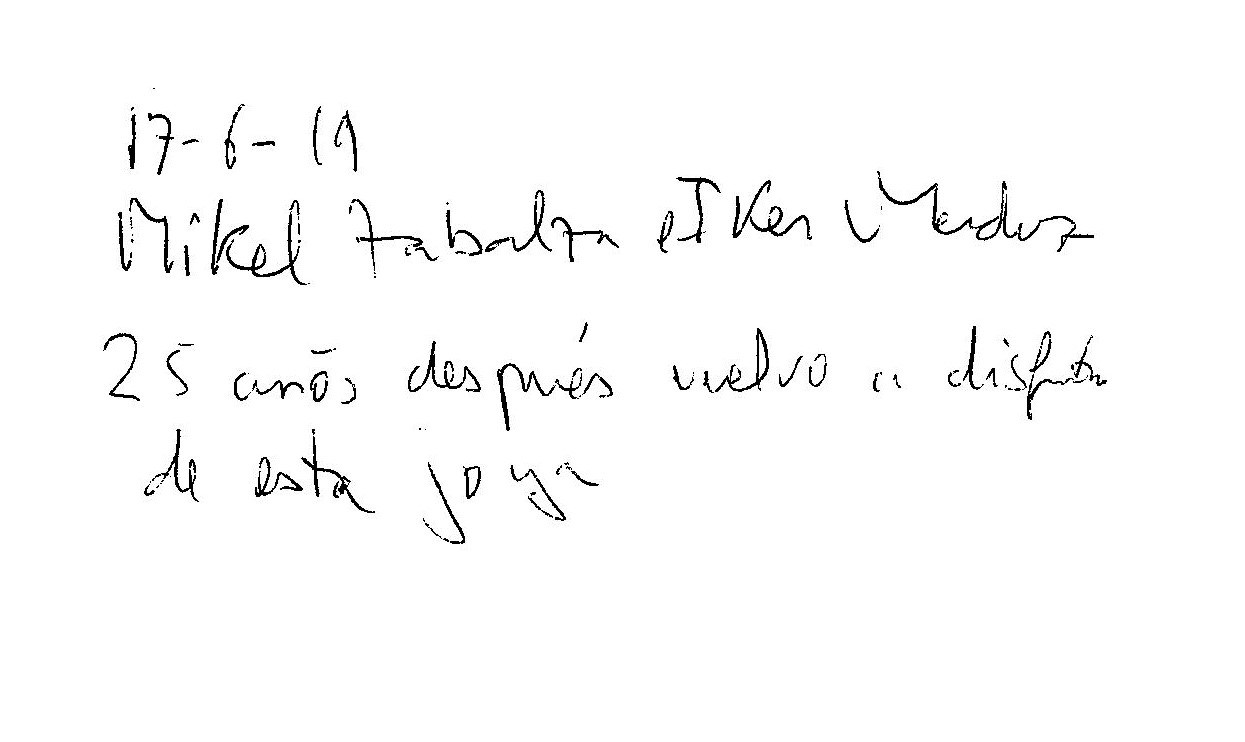 17-6-19
Mikel Zabalza e Iker Madoz
25 años después vuelvo a disfrutar
de esta joya